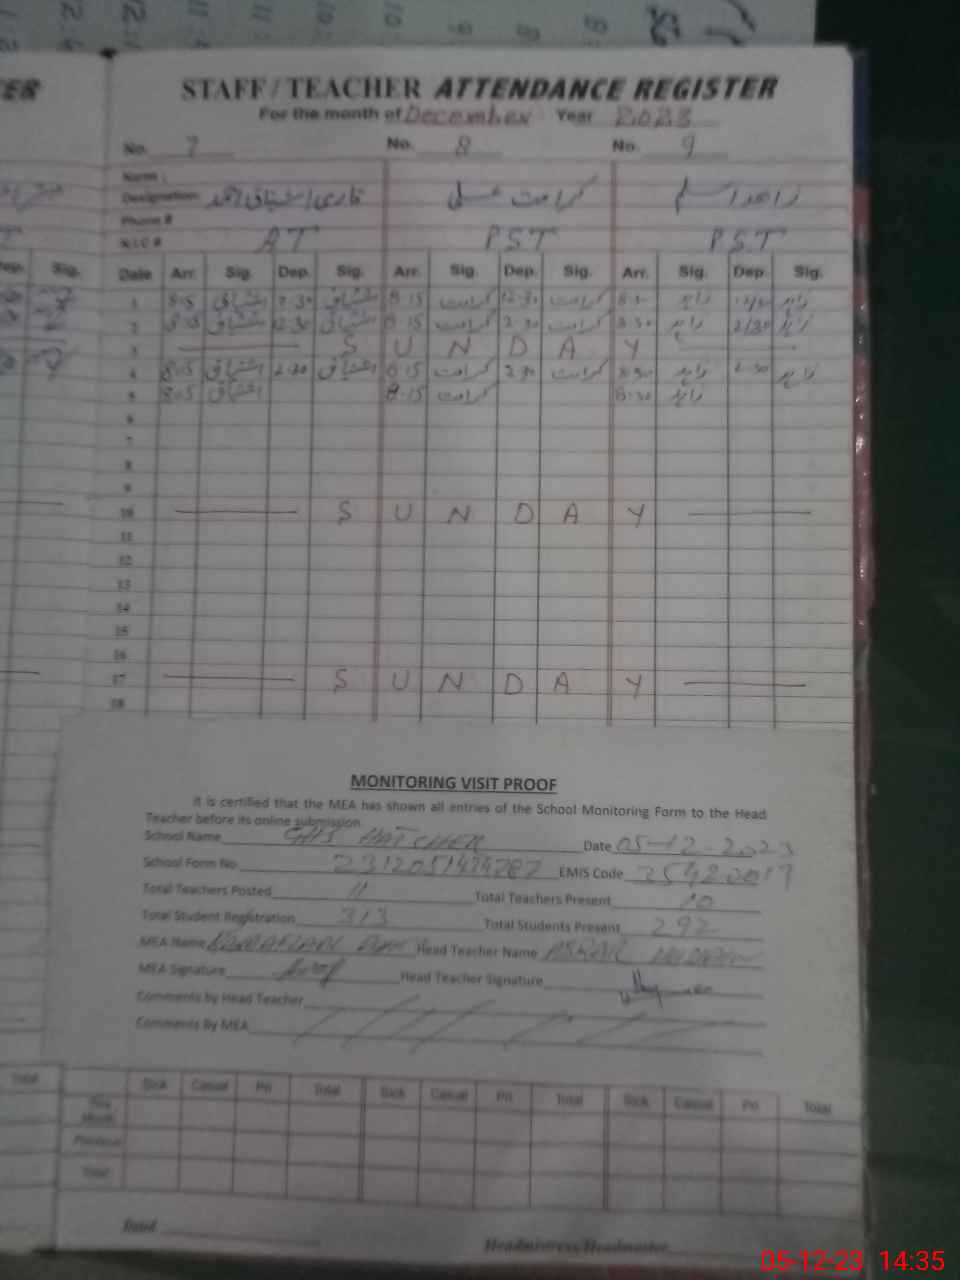 STAFF/TEACHER ATTENDANCE REGISTER
For the month of December Year 2023
No. 7 No. 8 No. 9
Name :
Designation: قاری اشتیاق احمد کرامت علی زاھد اسلم
Phone #
N.I.C # AT PST PST
Date Arr. Sig. Dep. Sig. Arr. Sig. Dep. Sig. Arr. Sig. Dep. Sig.
1 8.15 اشتیاق 12.30 اشتیاق 8.15 کرامت 12.30 کرامت 8.30 زاہد زاہد
2 8.15 اشتیاق 12.30 اشتیاق 8.15 کرامت 2.30 کرامت 8.30 زاہد 2/30 زاہد
3 SUNDAY
4 8.15 اشتیاق 2.30 اشتیاق 8.15 کرامت 2.30 کرامت 8.30 زاہد 2.30 زاہد
5 8.15 اشتیاق 8.15 کرامت 8.30 زاہد
6
7
8
9
10 SUNDAY
11
12
13
14
15
16
17 SUNDAY
18
MONITORING VISIT PROOF
It is certified that the MEA has shown all entries of the School Monitoring Form to the Head
Teacher before its online submission.
School Name GHS HATCHER Date 05-12-2023
School Form No EMIS Code 35420017
Total Teachers Posted 11 Total Teachers Present 10
Total Student Registration 313 Total Students Present 292
MEA Name Head Teacher Name
MEA Signature Head Teacher Signature
Comments by Head Teacher
Comments By MEA
Total Sick Casual Pri Total Sick Casual Pri Total Sick Casual Pri Total
This Month
Previous
Total
Dated
Headmistress/Headmaster
05-12-23 14:35